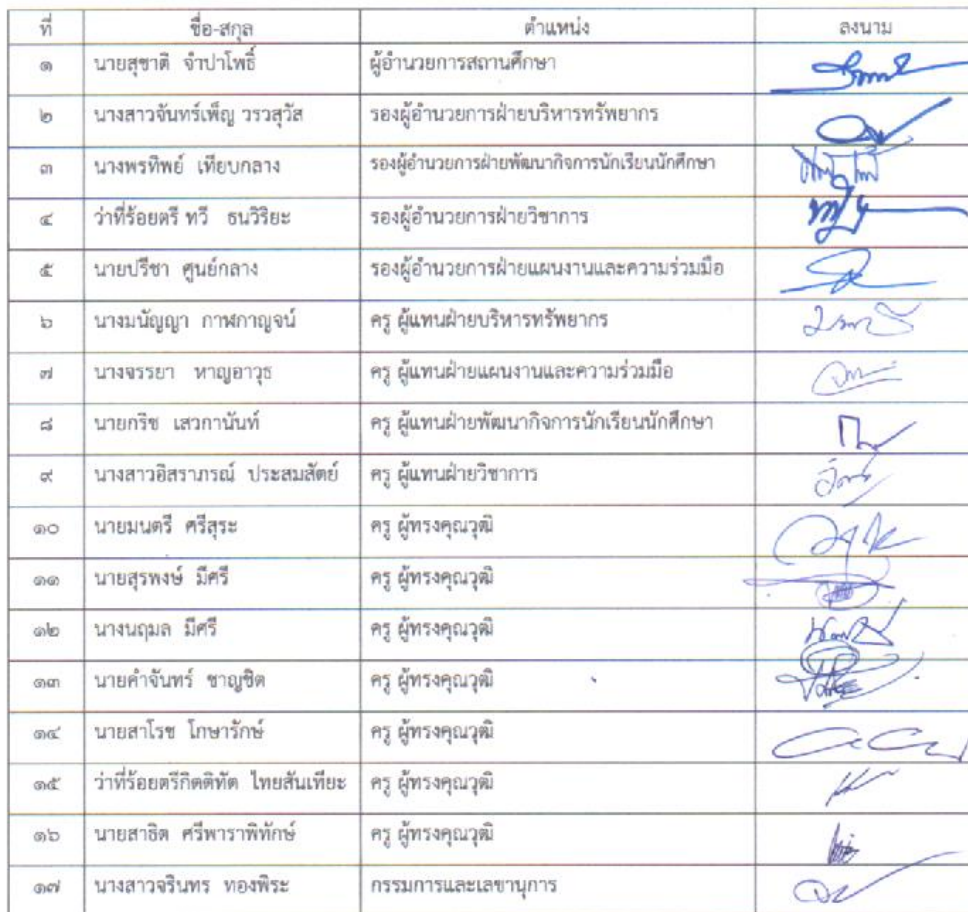 ที่ ชื่อ-สกุล ตำแหน่ง ลงนาม
๑ นายสุชาติ จำปาโพธิ์ ผู้อำนวยการสถานศึกษา
๒ นางสาวจันทร์เพ็ญ วรวสุวัส รองผู้อำนวยการฝ่ายบริหารทรัพยากร
๓ นางพรทิพย์ เทียบกลาง รองผู้อำนวยการฝ่ายพัฒนากิจการนักเรียนนักศึกษา
๔ ว่าที่ร้อยตรี ทวี ธนวิริยะ รองผู้อำนวยการฝ่ายวิชาการ
๕ นายปรีชา ศูนย์กลาง รองผู้อำนวยการฝ่ายแผนงานและความร่วมมือ
๖ นางมนัญญา กาฬกาญจน์ ครู ผู้แทนฝ่ายบริหารทรัพยากร
๗ นางจรรยา หาญอาวุธ ครู ผู้แทนฝ่ายแผนงานและความร่วมมือ
๘ นายกริช เสวกานันท์ ครู ผู้แทนฝ่ายพัฒนากิจการนักเรียนนักศึกษา
๙ นางสาวอิสราภรณ์ ประสมสัตย์ ครู ผู้แทนฝ่ายวิชาการ
๑๐ นายมนตรี ศรีสุระ ครู ผู้ทรงคุณวุฒิ
๑๑ นายสุรพงษ์ มีศรี ครู ผู้ทรงคุณวุฒิ
๑๒ นางนฤมล มีศรี ครู ผู้ทรงคุณวุฒิ
๑๓ นายคำจันทร์ ชาญชิต ครู ผู้ทรงคุณวุฒิ
๑๔ นายสาโรช โกษารักษ์ ครู ผู้ทรงคุณวุฒิ
๑๕ ว่าที่ร้อยตรีกิตติทัต ไทยสันเทียะ ครู ผู้ทรงคุณวุฒิ
๑๖ นายสาธิต ศรีพาราพิทักษ์ ครู ผู้ทรงคุณวุฒิ
๑๗ นางสาวจรินทร ทองพิระ กรรมการและเลขานุการ